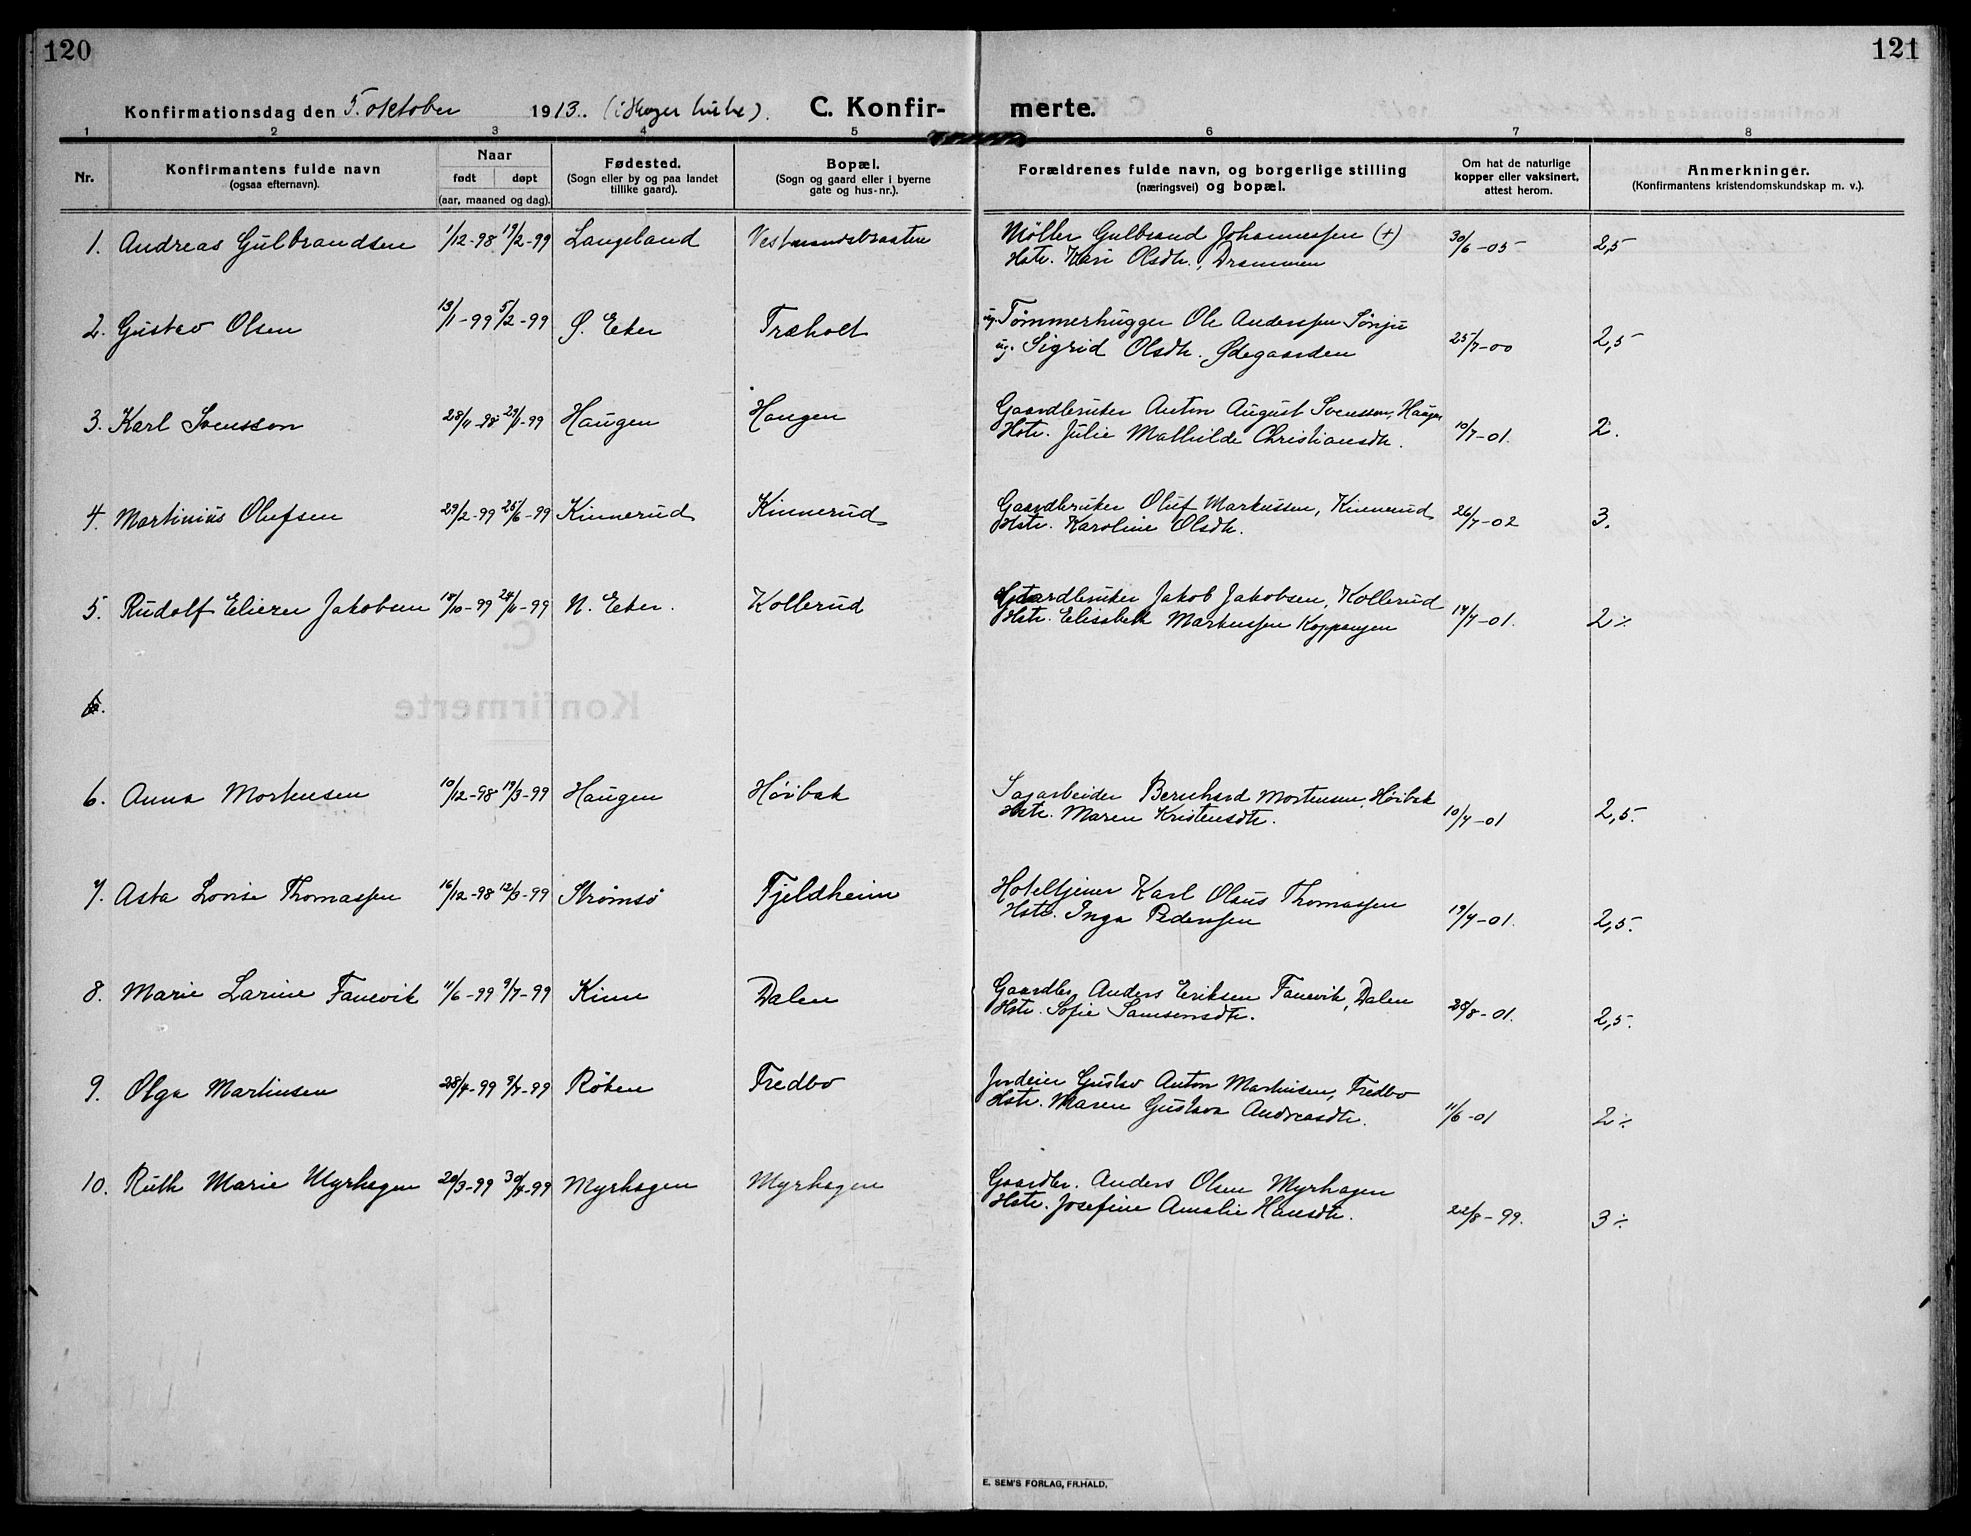 120
121
Konfirmationsdag den 5. oktober 1913. (i Skoger kirke). C. Konfir- merte.
1 2 3 4 5 6 7 8
Nr. Konfirmantens fulde navn (ogsaa efternavn). Naar født døpt (aar, maaned og dag). Fødested. (Sogn eller by og paa landet tillike gaard). Bopæl. (Sogn og gaard eller i byerne gate og hus-nr.). Forældrenes fulde navn, og borgerlige stilling (næringsvei) og bopæl. Om hat de naturlige kopper eller vaksinert, attest herom. Anmerkninger. (Konfirmantens kristendomskundskap m. v.).
1. Andreas Gulbrandsen 1/12-98 19/2-99 Langeland Vestmandsbraaten Møller Gulbrand Johannessen (+) 30/6-05 2,5
Hstr. Kari Olsdtr., Drammen
2. Gustav Olsen 13/1-99 5/2-99 Ø. Eker Træholt ug. Tømmerhugger Ole Anderssen Sønju
ug. Sigrid Olsdtr. Ødegaarden 25/7-00 2,5
3. Karl Svensson 28/11-98 29/1-99 Haugen Haugen Gaardbruker Anton August Svensson, Haugen
Hstr. Julie Mathilde Christiansdtr. 10/7-01. 2.
4. Martinius Olufsen 29/2-99 25/6-99 Kinnerud Kinnerud Gaardbruker Oluf Markussen, Kinnerud
Hstr. Karoline Olsdtr. 26/7-02 3.
5. Rudolf Eliezer Jakobsen 18/10-99 24/11-99 N. Eker. Kollerud Gaardbruker Jakob Jakobsen, Kollerud
Hstr. Elisabeth Markussen Koppangen 14/7-01. 2÷
6.
6. Anna Mortensen 10/12-98 19/3-99 Haugen Høibak Sagarbeider Bernhard Mortensen, Høibak
Hstr. Maren Kristensdtr. 10/7-01 2,5.
7. Asta Lovise Thomassen 16/12-98 12/3-99 Strømsø Fjeldheim Hoteltjener Karl Olaus Thomassen
Hstr. Inga Pederssen 19/7-01. 2,5.
8. Marie Larine Fanevik 11/6-99 9/7-99 Kinn Dalen Gaardbr. Anders Eriksen Fanevik, Dalen
Hstr. Sofie Samsonsdtr. 28/8-01. 2,5.
9. Olga Martinsen 28/4-99 9/7-99 Røken Fredbo Jordeier Gustav Anton Martinsen, Fredbo
Hstr. Maren Gustava Andreasdtr. 11/6-01 2÷
10. Ruth Marie Myrhagen 20/3-99 30/4-99 Myrhagen Myrhagen Gaardbr. Anders Olsen Myrhagen
Hstr. Josefine Amalie Hansdtr. 22/8-99. 3÷
E. SEM'S FORLAG, FR.HALD.